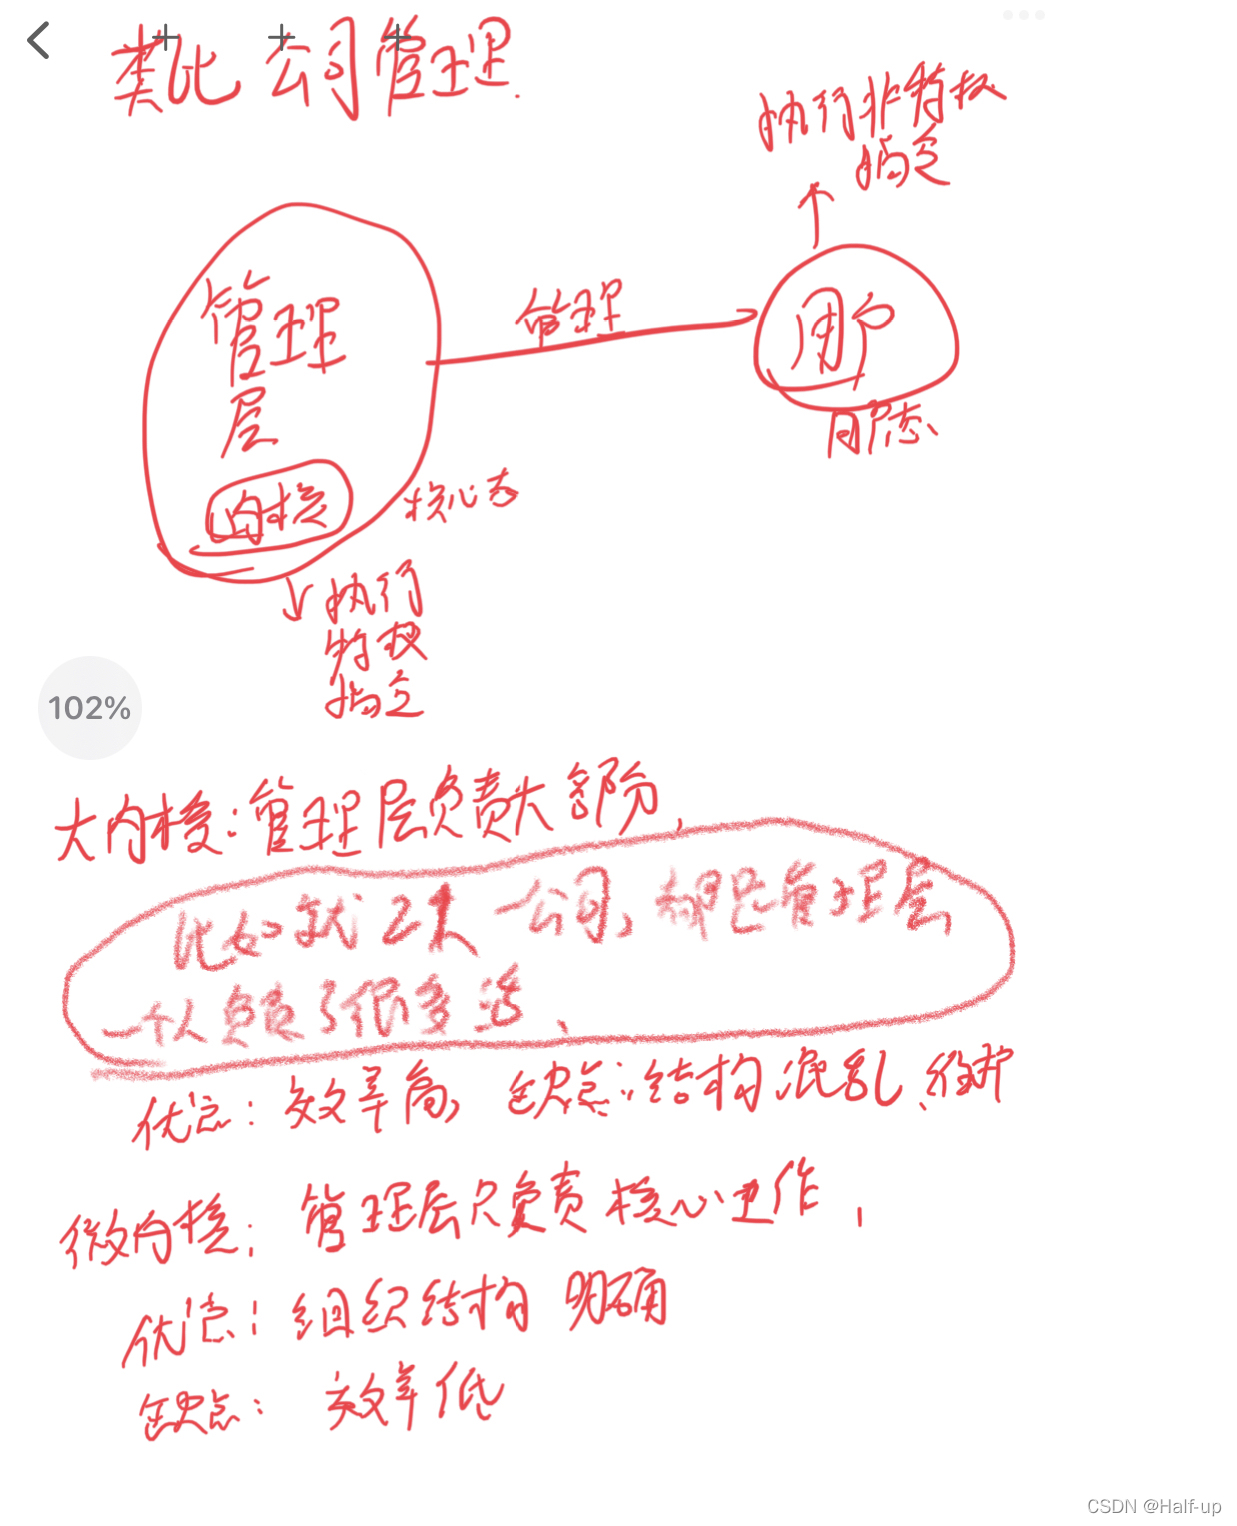 类比公司管理.
执行非特权
指令
管理
管理
层
用户
用户态
内核
核心态
执行
特权
指令
102%
大内核:管理层负责大部分,
比如就 一公司,都是管理层,
一个人负责了很多活、
优点:效率高, 缺点:结构混乱、维护
微内核: 管理层只负责核心工作,
优点: 组织结构 明确
缺点: 效率低
CSDN @Half-up